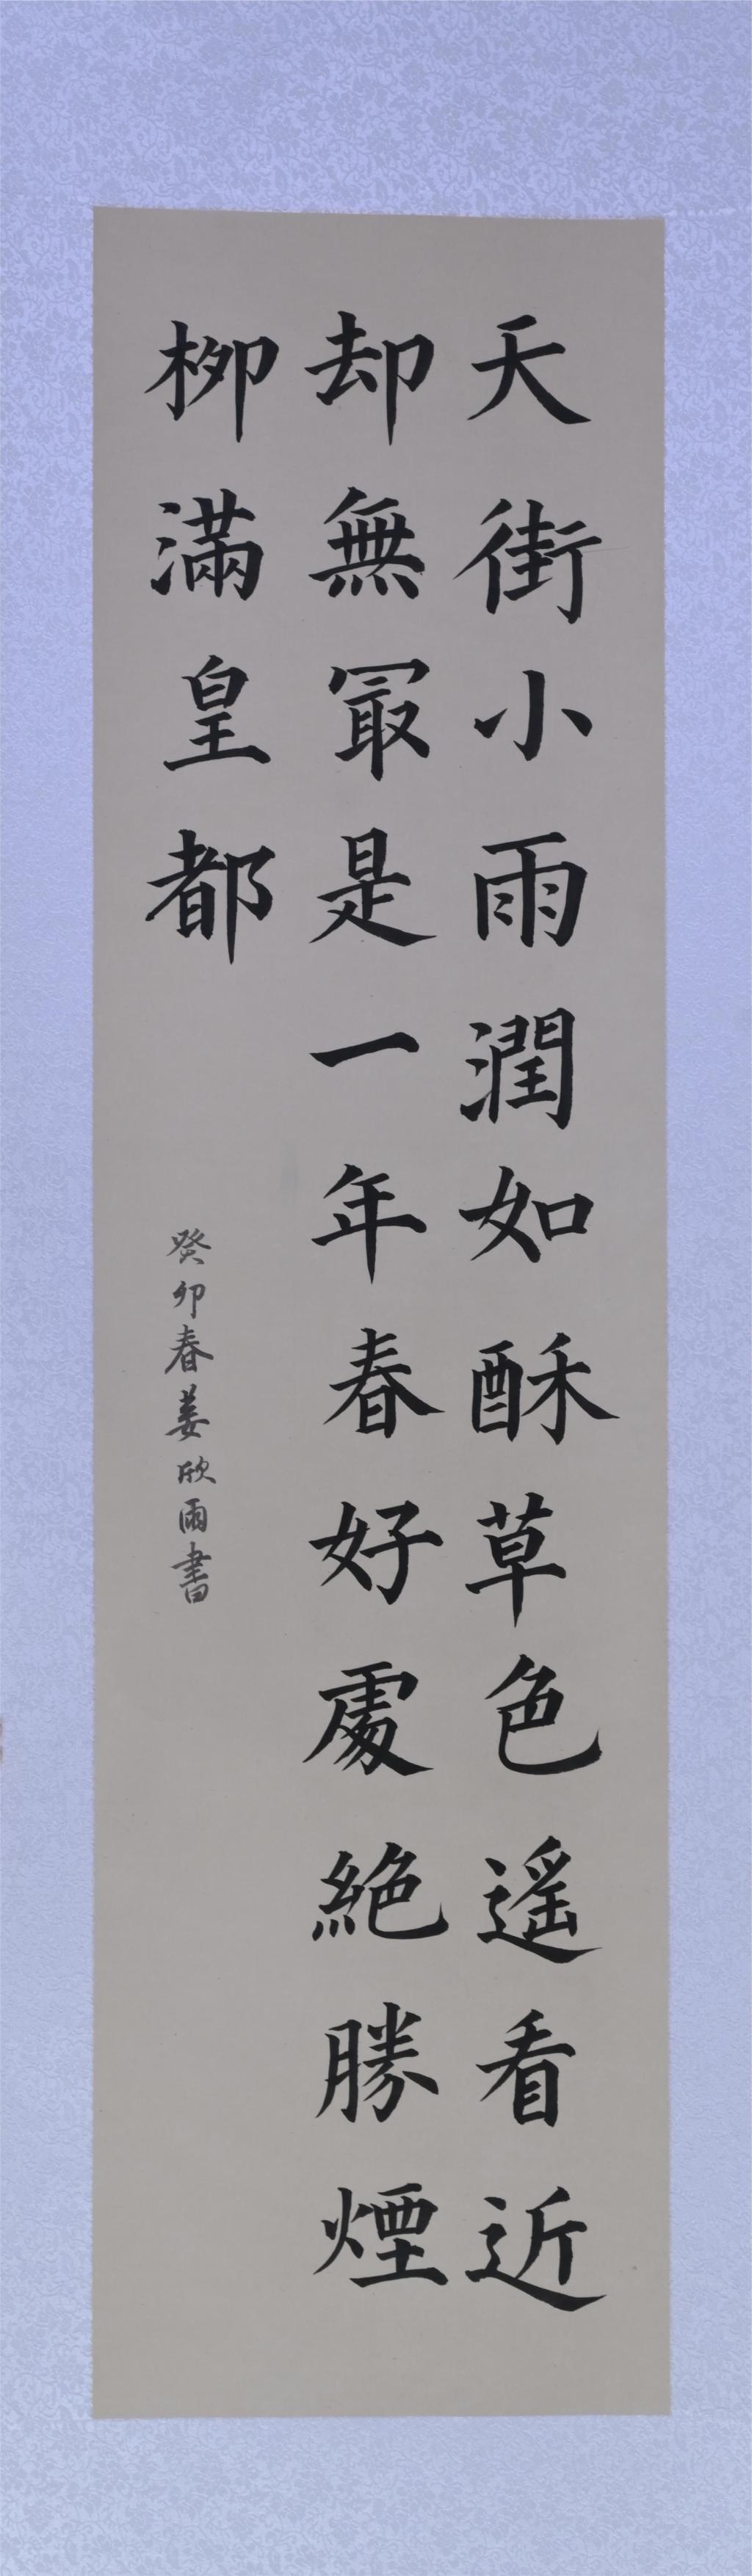 天街小雨潤如酥草色遥看近
却無冣是一年春好處絶勝煙
栁滿皇都
癸卯春姜欣雨書